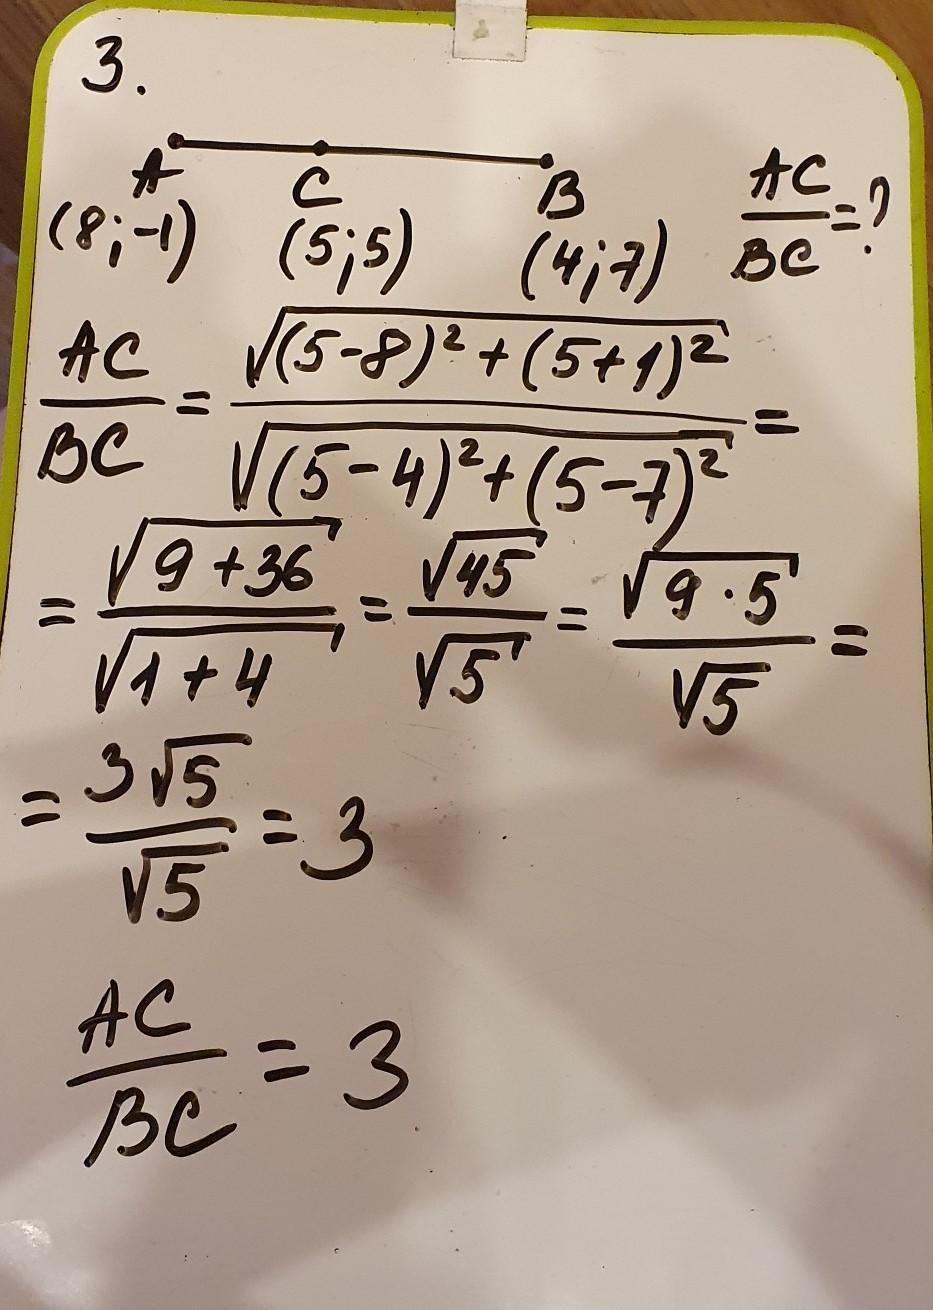 3.
A C B AC/BC = ?
(8;-1) (5;5) (4;7)
AC/BC = √((5-8)² + (5+1)²) / √((5-4)² + (5-7)²) =
= √(9+36) / √(1+4) = √45 / √5 = √(9·5) / √5 =
= 3√5 / √5 = 3
AC/BC = 3